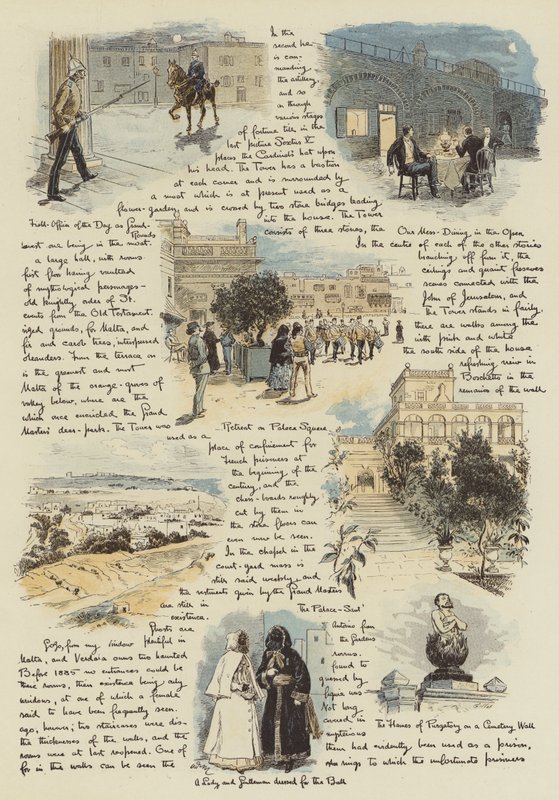 In this
second he
is com-
manding
the artillery,
and so
on through
various stages
of fortune till in the
last picture Sextus V
places the Cardinal's hat upon
his head. The Tower has a bastion
at each corner and is surrounded by
a moat which is at present used as a
flower-garden, and is crossed by two stone bridges leading
into the house. The Tower
consists of three stories, the
Field-Officer of the Day as Grand-
Rounds
Our Mess-Dining in the Open
lowest one being in the moat.
In the centre of each of the other stories
a large hall, with rooms
branching off from it, the
first floor having vaulted
ceilings and quaint frescoes
of mythological personages-
scenes connected with the
old knightly order of St.
John of Jerusalem, and
events from the Old Testament.
The Tower stands in fairly
sized grounds, for Malta, and
there are walks among the
fir and carob trees, interspersed
with pink and white
oleanders. From the terrace on
the south side of the house
is the greenest and most
refreshing view in
Malta of the orange-groves of
Boschetto in the
valley below, where are the
remains of the wall
which once encircled the Grand
Masters' deer-park. The Tower was
Retreat on Palace Square
used as a
place of confinement for
French prisoners at
the beginning of the
century, and the
chess-boards roughly
cut by them in
the stone floors can
even now be seen.
In the chapel in the
court-yard mass is
still said weekly, and
the vestments given by the Grand Masters
are still in
existence.
The Palace-
Gozo, from my window
Ghosts are
plentiful in
Malta, and Verdala owns two haunted
rooms.
Before 1885 no entrances could be
found to
these rooms, their existence being only
guessed by
windows, at one of which a female
figure was
said to have been frequently seen.
Not long
ago, however, two staircases were dis-
carved in
the thicknesses of the walls, and the
mysterious
rooms were at last reopened. One of
them had evidently been used as a prison,
for in the walls can be seen the
rings to which the unfortunate prisoners
S. Antonio from
the Gardens
The Flames of Purgatory on a Cemetery Wall
A Lady and Gentleman dressed for the Ball